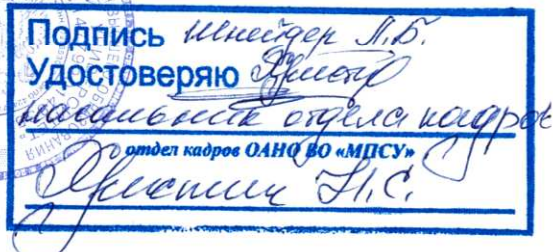 Подпись Шнейдер Л.Б.
Удостоверяю
начальник отдела кадров
отдел кадров ОАНО ВО «МПСУ»
Н.С.